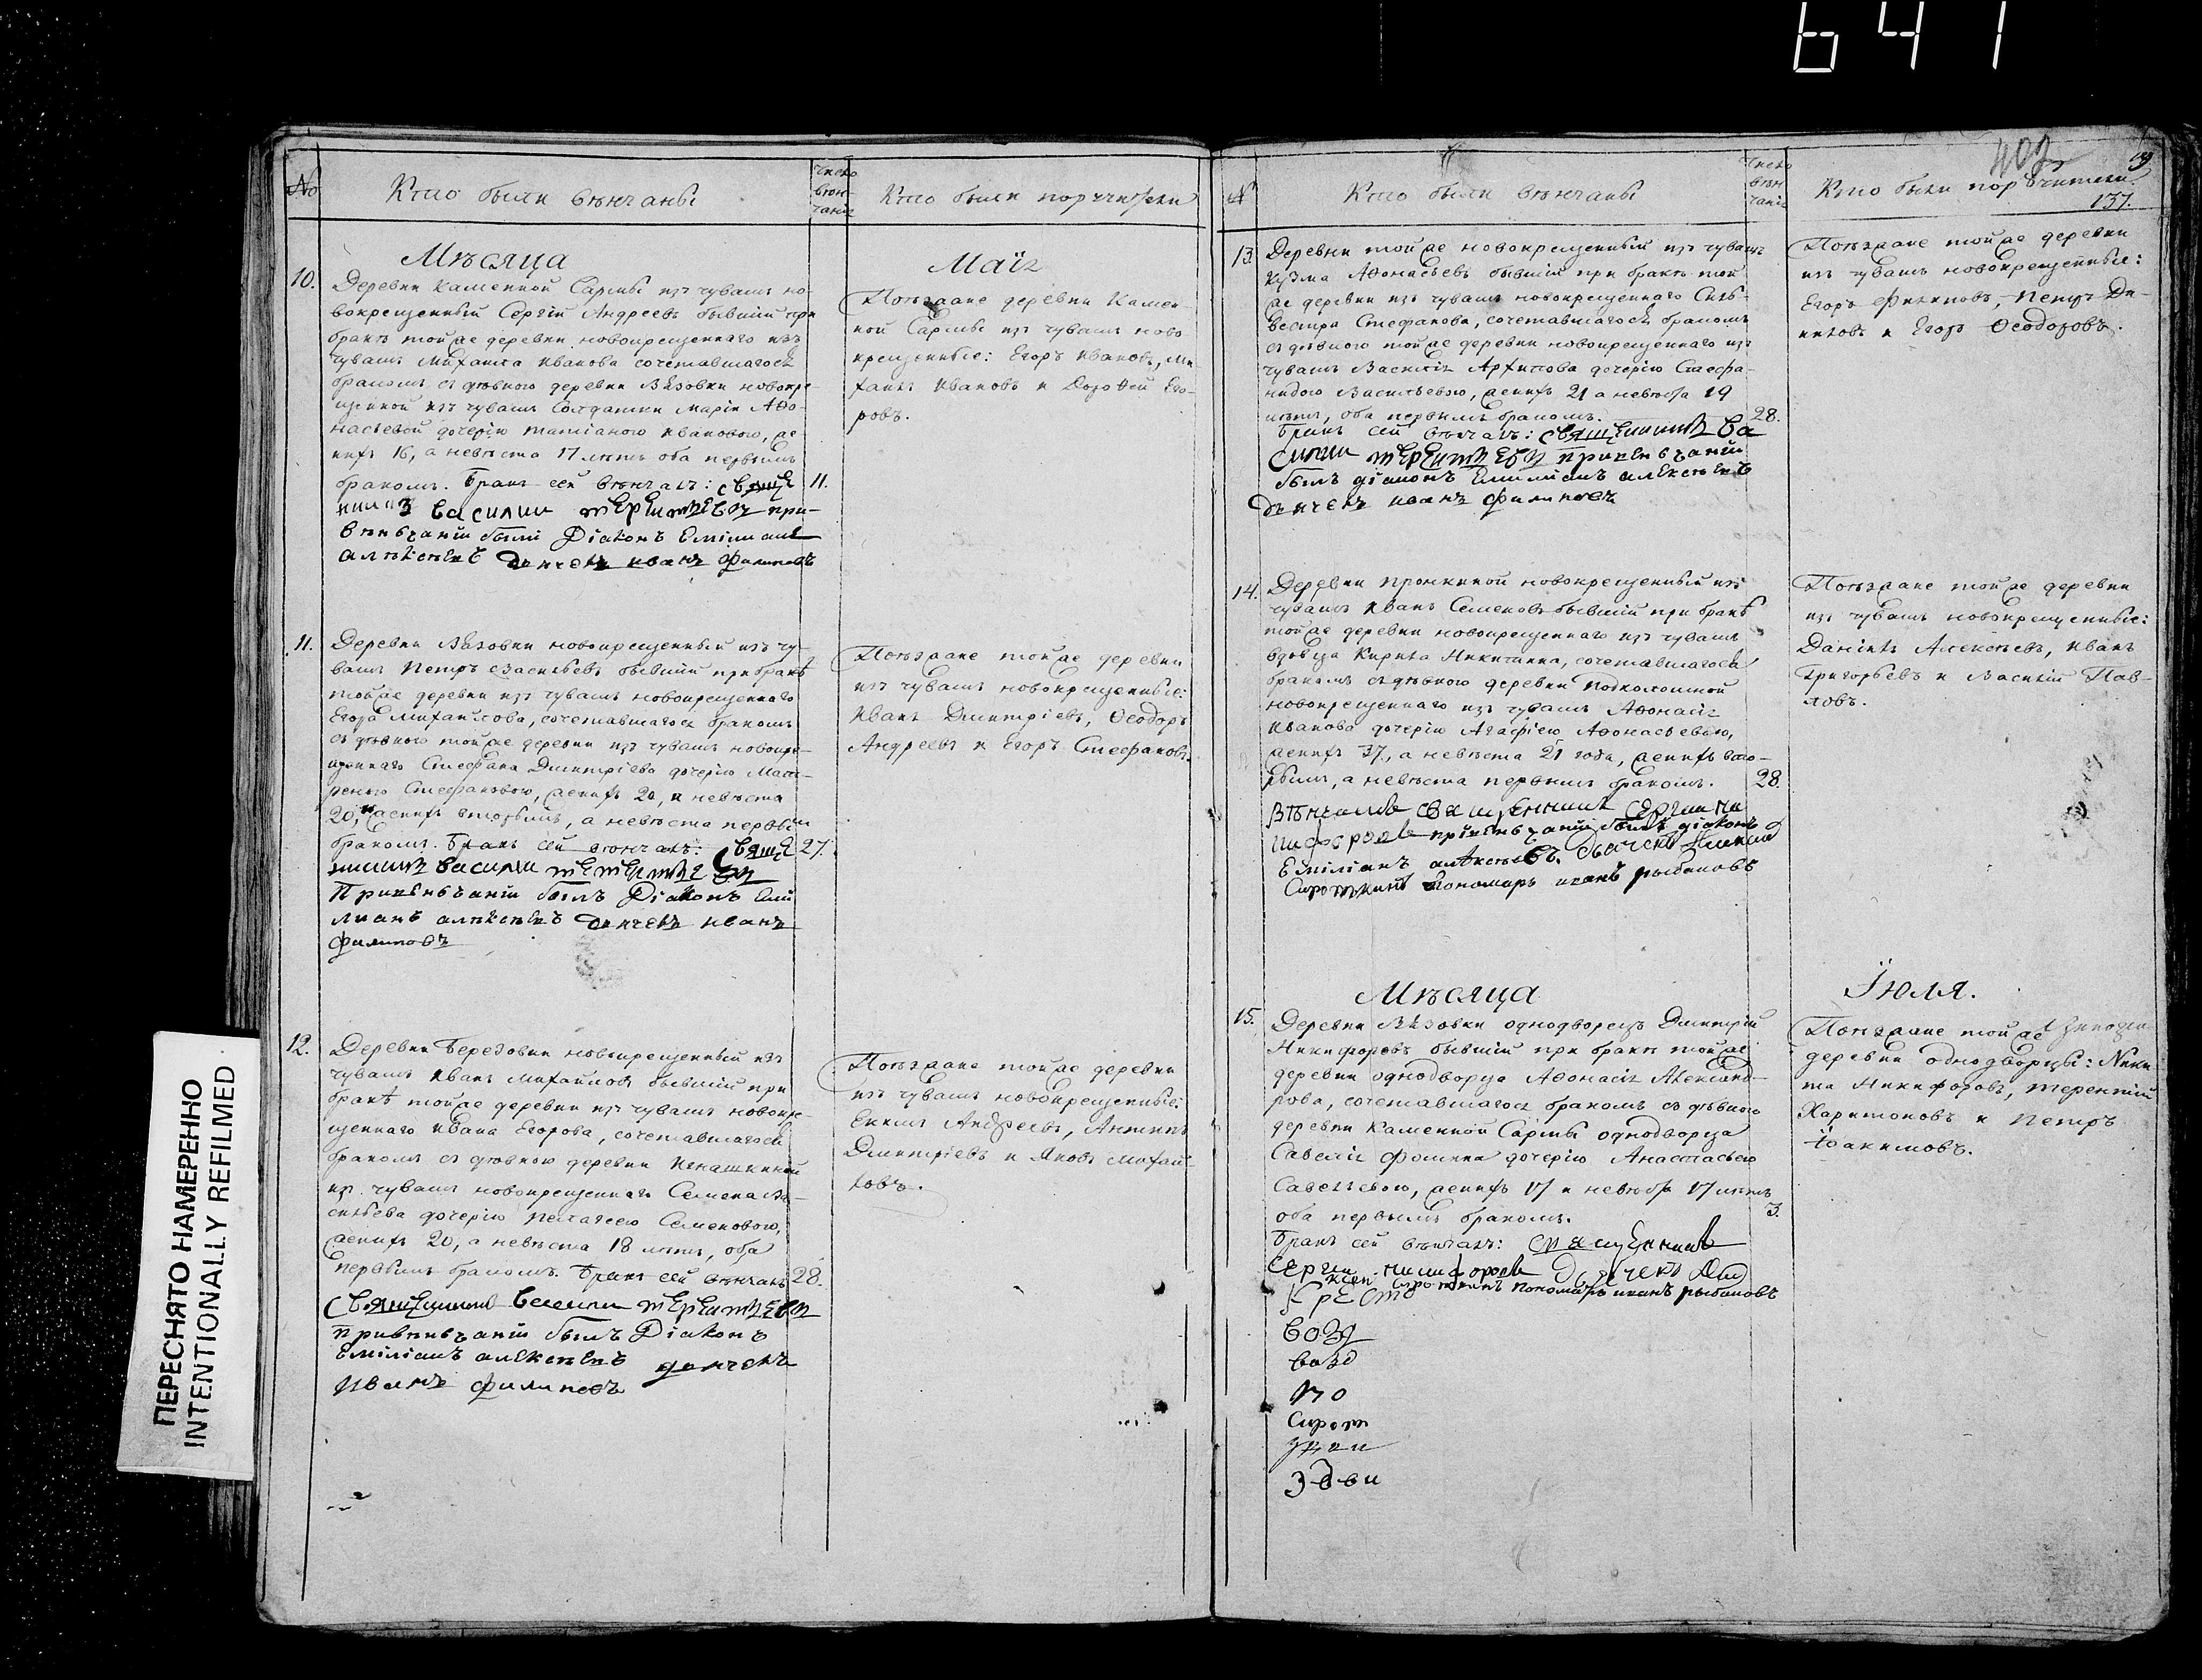 641
ПЕРЕСНЯТО НАМЕРЕННО
INTENTIONALLY REFILMED
№
Кто были вѣнчаны
Число вѣнчанія
Кто были поручители
Мѣсяца
Маія
10.
Деревни Каменной Сармы изъ чувашъ но-
вокрещенный Сергій Андреевъ бывшій при
бракѣ тойже деревни новокрещеннаго изъ
чувашъ Михаила Иванова сочетавшагося
бракомъ съ дѣвкою деревни Вязовки новокре-
щенной изъ чувашъ Солдатки Маріи Афо-
насьевой дочерію Татіаною Ивановою, же-
нихъ 16, а невѣста 17 лѣтъ оба первымъ
бракомъ. Бракъ сей вѣнчалъ: свяще
11.
никъ Василии
при-
вѣнчаніи были Діаконъ Емиліанъ
алѣксѣевъ дьячекъ иванъ филиповъ
Поѣзжане деревни Камен-
ной Сармы изъ чувашъ ново
крещенные: Егоръ Ивановъ, Ми
хаилъ Ивановъ и Дорофей Его-
ровъ.
11.
Деревни Вязовки новокрещенный изъ чу-
вашъ Петръ Васильевъ бывшій при бракѣ
тойже деревни изъ чувашъ новокрещеннаго
Егора Михайлова, сочетавшагося бракомъ
съ дѣвкою тойже деревни изъ чувашъ новокре-
щеннаго Стефана Дмитріева дочерію Мат-
реною Стефановою, женихъ 20, и невѣста
20, женихъ вторымъ, а невѣста первымъ
бракомъ. Бракъ сей вѣнчалъ: свяще
27.
нникъ Василии
При вѣнчаніи былъ Діаконъ Еми
лианъ алѣксѣевъ дьячекъ иванъ
филиповъ
Поѣзжане тойже деревни
изъ чувашъ новокрещенные:
Иванъ Дмитріевъ, Ѳеодоръ
Андреевъ и Егоръ Стефановъ.
12.
Деревни Березовки новокрещенный изъ
чувашъ Иванъ Михайловъ бывшій при
бракѣ тойже деревни изъ чувашъ новокре-
щеннаго Ивана Егорова, сочетавшагося
бракомъ съ дѣвкою деревни Ивашкиной
изъ чувашъ новокрещеннаго Семена Ва-
сильева дочерію Пелагеею Семеновою,
женихъ 20, а невѣста 18 лѣтъ, оба
первымъ бракомъ. Бракъ сей вѣнчалъ
28.
Священникъ Василии
При вѣнчаніи былъ Діаконъ
Емиліанъ алексѣевъ дьячекъ
Иванъ филиповъ
Поѣзжане тойже деревни
изъ чувашъ новокрещенные:
Андреевъ, Антипъ
Дмитріевъ и Яковъ Михай-
ловъ.
Кто были вѣнчаны
Число вѣнчанія
Кто были поручители
137.
13.
Деревни тойже новокрещенный изъ чувашъ
Кузма Афонасьевъ бывшій при бракѣ той
же деревни изъ чувашъ новокрещеннаго Силь-
вестра Стефанова, сочетавшагося бракомъ
съ дѣвкою тойже деревни новокрещеннаго изъ
чувашъ Василія Архипова дочерію Стефа-
нидою Васильевою, женихъ 21 а невѣста 19
лѣтъ, оба первымъ бракомъ.
28.
Бракъ сей вѣнчалъ: священникъ Ва
силии
при вѣнчаніи
былъ діаконъ Емилианъ алексѣевъ
дьячекъ иванъ филиповъ
Поѣзжане тойже деревни
изъ чувашъ новокрещенные:
Егоръ Филиповъ, Петръ Да-
ниловъ и Егоръ Ѳеодоровъ.
14.
Деревни Пронкиной новокрещенный изъ
чувашъ Иванъ Семеновъ бывшій при бракѣ
тойже деревни новокрещеннаго изъ чувашъ
вдовца Кирила Никитина, сочетавшагося
бракомъ съ дѣвкою деревни Подколошной
новокрещеннаго изъ чувашъ Афонасія
Иванова дочерію Агафіею Афонасьевою,
женихъ 37, а невѣста 21 года, женихъ вто-
рымъ, а невѣста первымъ бракомъ.
28.
Вѣнчалъ священникъ Сергии Ни
кифоровъ при вѣнчаніи былъ діаконъ
Емиліанъ алѣксѣевъ. дьячекъ
Сироткинъ пономарь иванъ рыбаковъ
Поѣзжане тойже деревни
изъ чувашъ новокрещенные:
Даніилъ Алексѣевъ, Иванъ
Григорьевъ и Василій Пав-
ловъ.
Мѣсяца
Іюля.
15.
Деревни Вязовки однодворецъ Дмитрій
Никифоровъ бывшій при бракѣ тойже
деревни однодворца Афонасія Александ-
рова, сочетавшагося бракомъ съ дѣвкою
деревни Каменной Сармы однодворца
Савелія Фомина дочерію Анастасьею
Савельевою, женихъ 17 и невѣста 17 лѣтъ
оба первымъ бракомъ.
3.
Бракъ сей вѣнчалъ: священникъ
Сергии никифоровъ дьячекъ
Сироткинъ пономарь иванъ рыбаковъ
Кресто
возд
возд
Сирот
Поѣзжане тойже
деревни однодворцы: Ники
та Никифоровъ, Терентий
Харитоновъ и Петръ
Іоакимовъ.